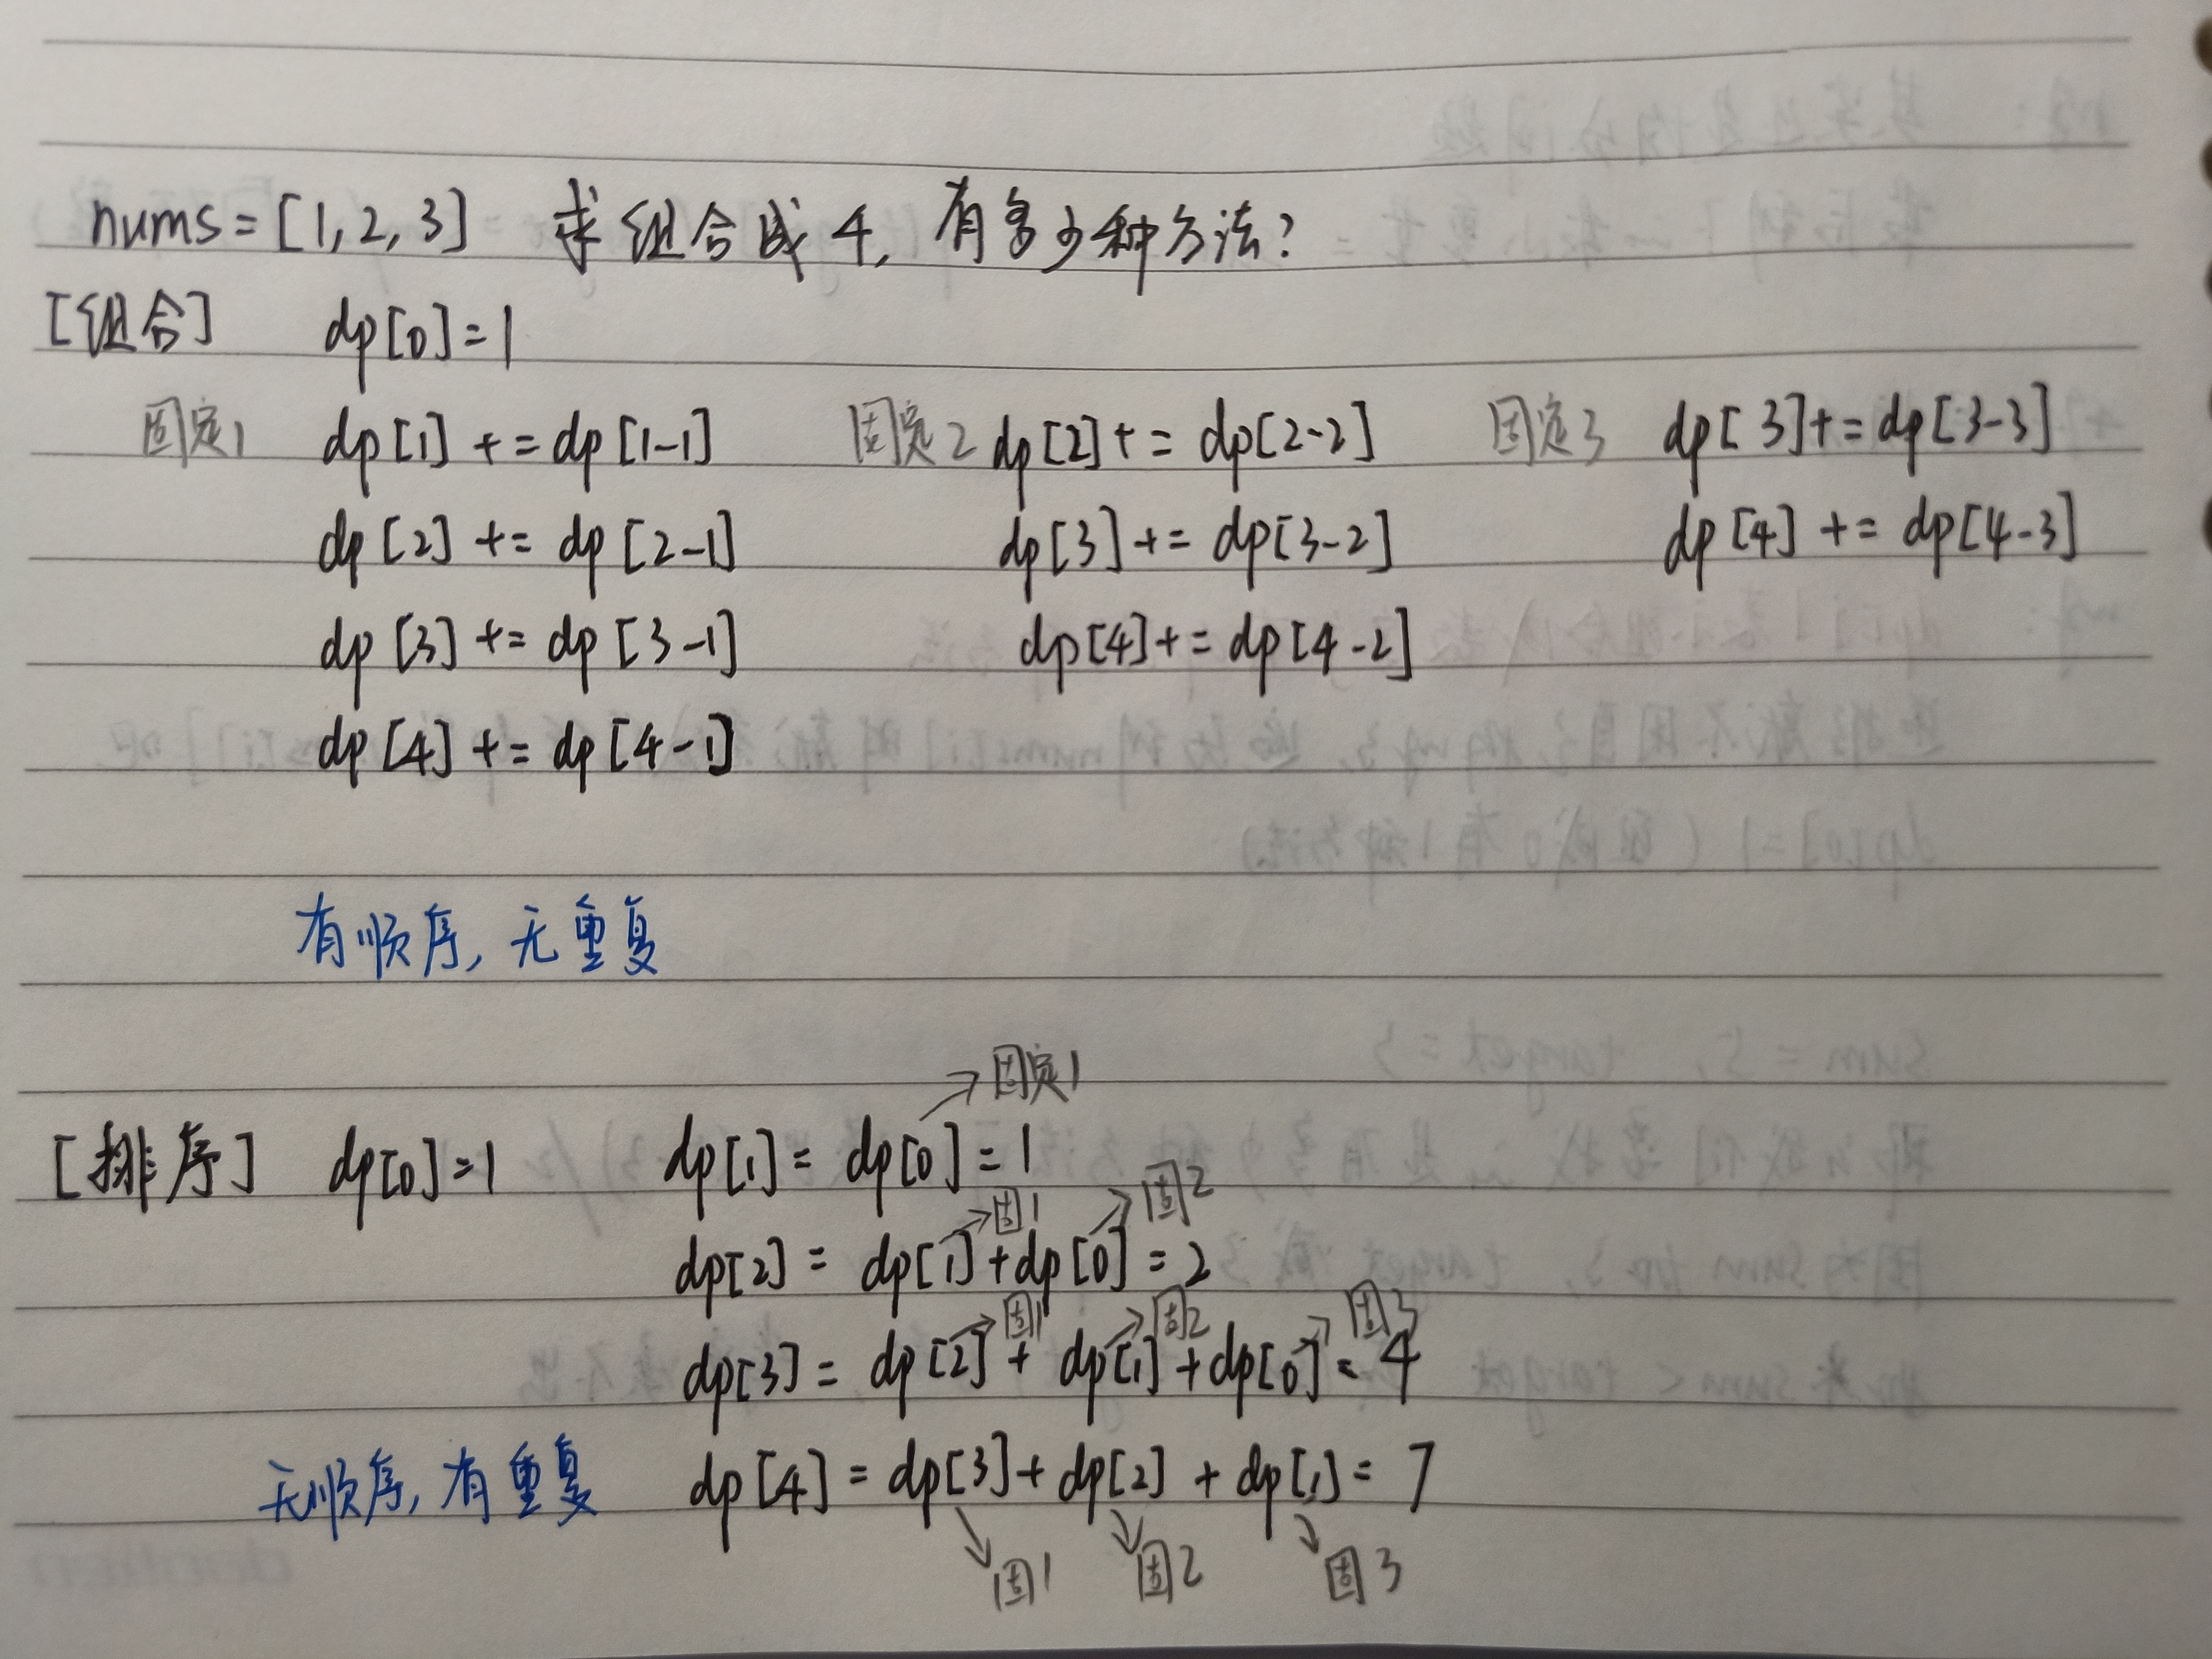 nums = [1, 2, 3] 求组合成 4, 有多少种方法?
[组合] dp[0]=1
固定1 dp[1] += dp[1-1] 固定2 dp[2] += dp[2-2] 固定3 dp[3] += dp[3-3]
dp[2] += dp[2-1] dp[3] += dp[3-2] dp[4] += dp[4-3]
dp[3] += dp[3-1] dp[4] += dp[4-2]
dp[4] += dp[4-1]
有顺序, 无重复
→固定1
[排序] dp[0]=1 dp[1] = dp[0] = 1
→固1 →固2
dp[2] = dp[1]+dp[0] = 2
→固1 →固2 →固3
dp[3] = dp[2] + dp[1] + dp[0] = 4
无顺序, 有重复 dp[4] = dp[3] + dp[2] + dp[1] = 7
固1 固2 固3